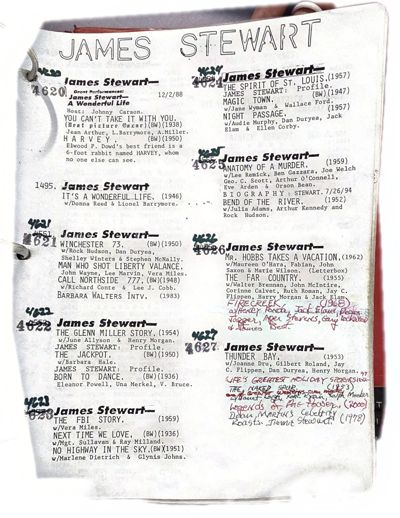 JAMES STEWART
4620
4620
James Stewart—
Great Performances
James Stewart—
A Wonderful Life
12/2/88
Host: Johnny Carson.
YOU CAN'T TAKE IT WITH YOU.
(Best picture Oscar)(BW)(1938)
Jean Arthur, L.Barrymore, A.Miller.
HARVEY. (BW)(1950)
Elwood P. Dowd's best friend is a
6-foot rabbit named HARVEY, whom
no one else can see.
1495.
James Stewart—
IT'S A WONDERFUL LIFE. (1946)
w/Donna Reed & Lionel Barrymore.
4621
4621
James Stewart—
WINCHESTER 73. (BW)(1950)
w/Rock Hudson, Dan Duryea,
Shelley Winters & Stephen McNally.
MAN WHO SHOT LIBERTY VALANCE.
John Wayne, Lee Marvin, Vera Miles.
CALL NORTHSIDE 777.(BW)(1948)
w/Richard Conte & Lee J. Cobb.
BARBARA WALTERS INTV. (1983)
4622
4622
James Stewart—
THE GLENN MILLER STORY.(1954)
w/June Allyson & Henry Morgan.
JAMES STEWART: Profile.
THE JACKPOT. (BW)(1950)
w/Barbara Hale.
JAMES STEWART: Profile.
BORN TO DANCE. (BW)(1936)
Eleanor Powell, Una Merkel, V. Bruce.
4623
James Stewart—
THE FBI STORY. (1959)
w/Vera Miles.
NEXT TIME WE LOVE. (BW)(1936)
w/Mgt. Sullavan & Ray Milland.
NO HIGHWAY IN THE SKY.(BW)(1951)
w/Marlene Dietrich & Glynis Johns.
4624
4624
James Stewart—
THE SPIRIT OF ST. LOUIS.(1957)
JAMES STEWART: Profile.
MAGIC TOWN. (BW)(1947)
w/Jane Wyman & Wallace Ford.
NIGHT PASSAGE. (1957)
w/Audie Murphy, Dan Duryea, Jack
Elam & Ellen Corby.
4625
4625
James Stewart—
ANATOMY OF A MURDER. (1959)
w/Lee Remick, Ben Gazzara, Joe Welch
Geo. C. Scott, Arthur O'Connell,
Eve Arden & Orson Bean.
BIOGRAPHY: J. STEWART.7/26/94
BEND OF THE RIVER. (1952)
w/Julia Adams, Arthur Kennedy and
Rock Hudson.
4626
4626
James Stewart—
MR. HOBBS TAKES A VACATION.(1962)
w/Maureen O'Hara, Fabian, John
Saxon & Marie Wilson. (Letterbox)
THE FAR COUNTRY. (1955)
w/Walter Brennan, John McIntire,
Corinne Calvet, Ruth Roman, Jay C.
Flippen, Harry Morgan & Jack Elam
FIRECREEK. (1968)
w/Henry Fonda, Jack Elam, Dean
Jagger, Inger Stevens, Gary Lockwood
& James Best.
4627
4627
James Stewart—
THUNDER BAY. (1953)
w/Joanne Dru, Gilbert Roland, Jay
C. Flippen, Dan Duryea, Henry Morgan.
THE NAKED SPUR (1953)
(2000)
Dean Martin's Celebrity
Roasts: Jimmy Stewart (1978)